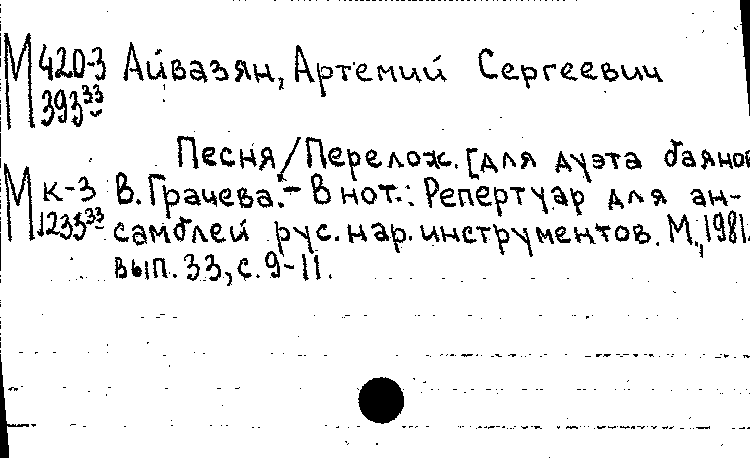 М 420-3 Айвазян, Артемий Сергеевич
393³³
Песня/Перелож. [для дуэта баянов
М к-3 В. Грачева. - В нот.: Репертуар для ан-
1235³³ самблей рус. нар. инструментов. М., 1981.
вып. 33, с. 9-11.